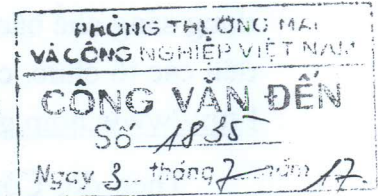 PHÒNG THƯƠNG MẠI
VÀ CÔNG NGHIỆP VIỆT NAM
CÔNG VĂN ĐẾN
Số 1835
Ngày 3 tháng 7 năm 17.